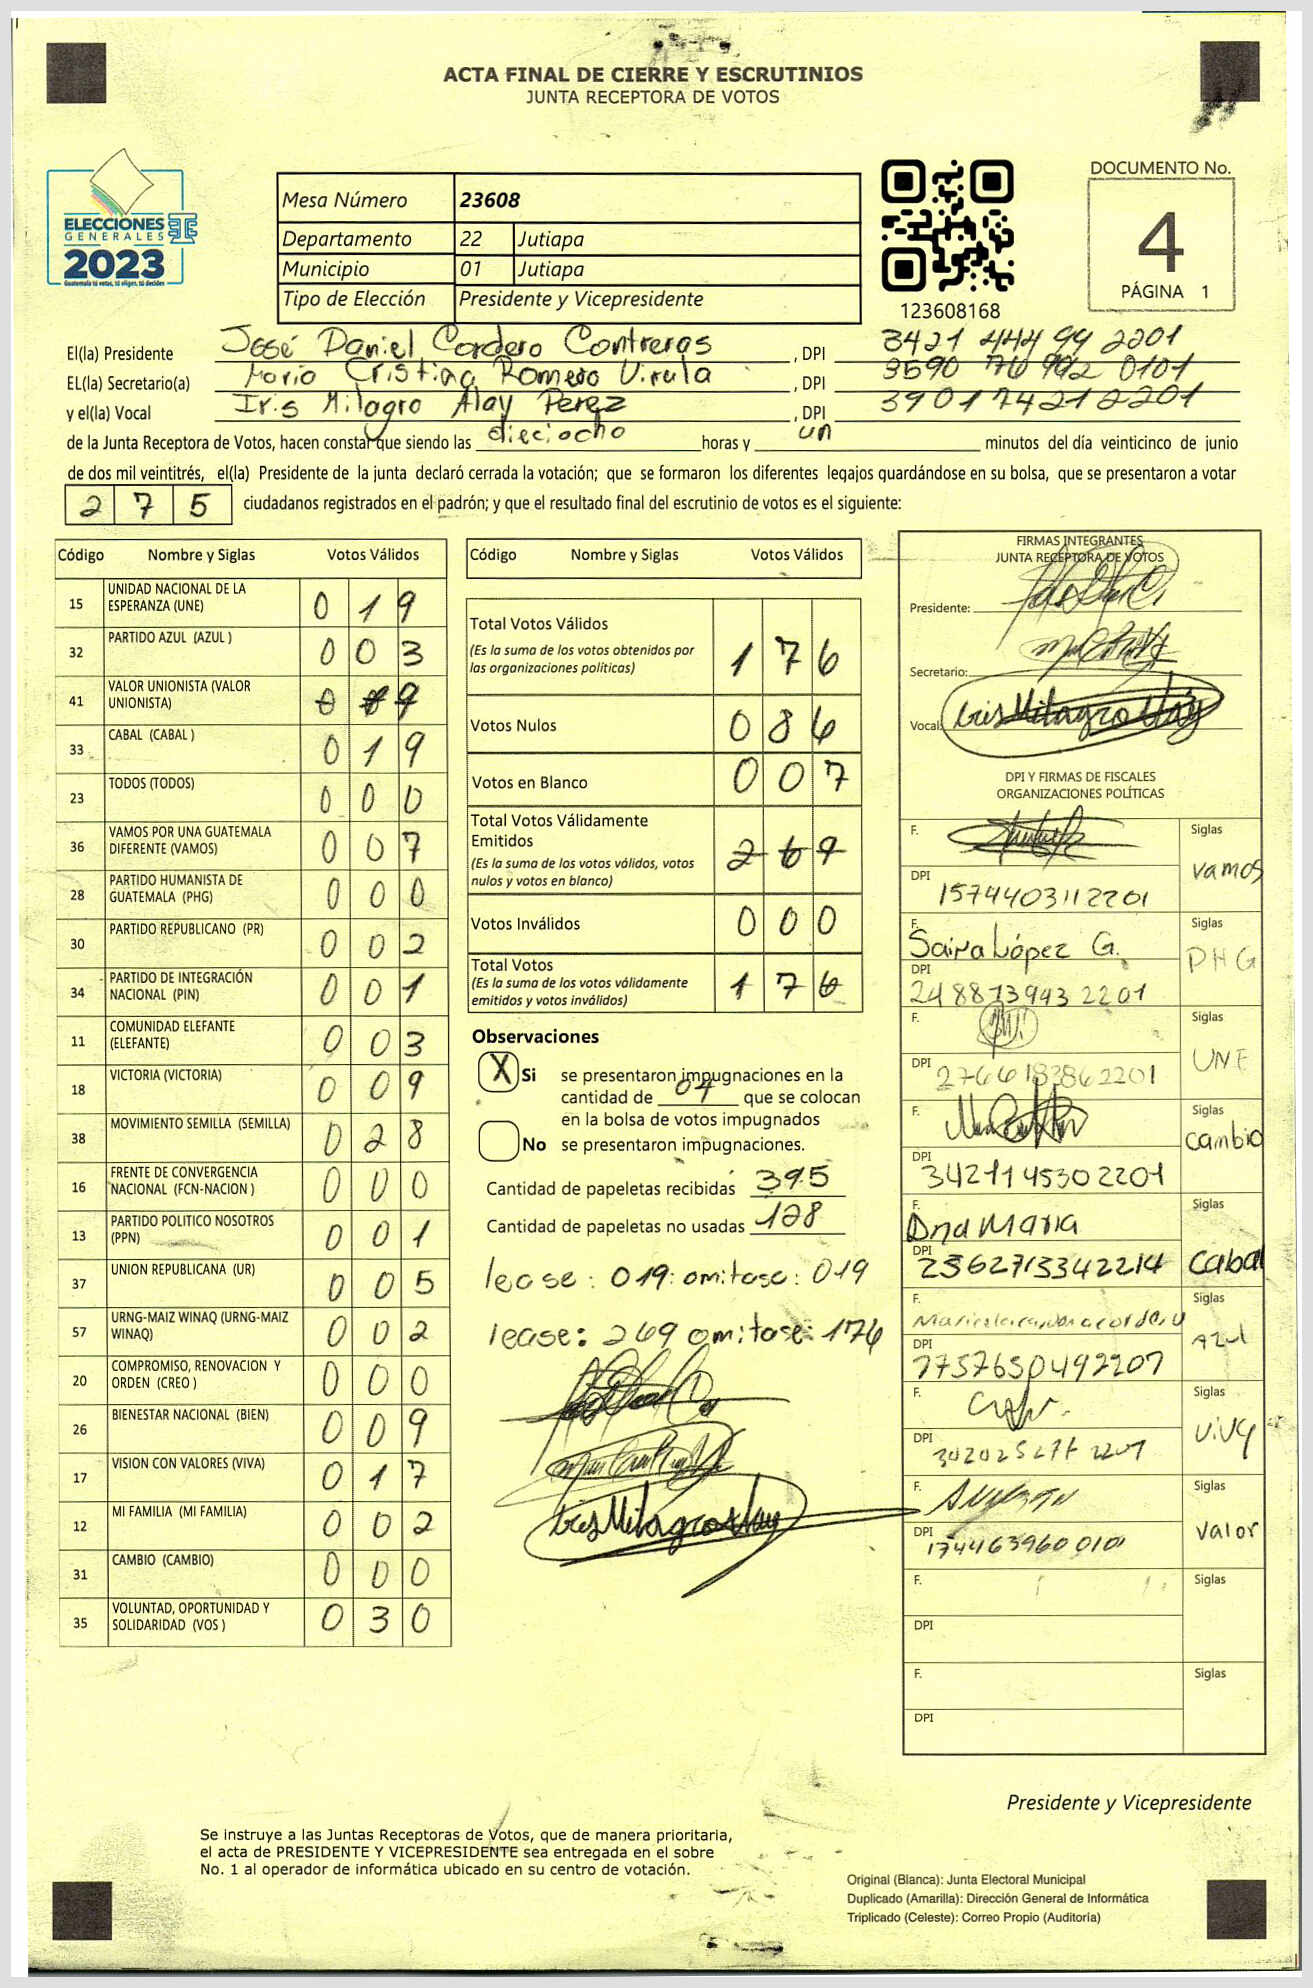 ACTA FINAL DE CIERRE Y ESCRUTINIOS
JUNTA RECEPTORA DE VOTOS
ELECCIONES
GENERALES
2023
Guatemala tú votas, tú eliges, tú decides
Mesa Número 23608
Departamento 22 Jutiapa
Municipio 01 Jutiapa
Tipo de Elección Presidente y Vicepresidente
123608168
DOCUMENTO No.
4
PÁGINA 1
El(la) Presidente José Daniel Cordero Contreras , DPI 3421 444 99 2201
EL(la) Secretario(a) María Cristina Romero Virula , DPI 3590 76 992 0101
y el(la) Vocal Iris Milagro Alay Perez , DPI 3901742122201
de la Junta Receptora de Votos, hacen constar que siendo las dieciocho horas y un minutos del día veinticinco de junio
de dos mil veintitrés, el(la) Presidente de la junta declaró cerrada la votación; que se formaron los diferentes legajos quardándose en su bolsa, que se presentaron a votar
2 7 5 ciudadanos registrados en el padrón; y que el resultado final del escrutinio de votos es el siguiente:
Código Nombre y Siglas Votos Válidos
15 UNIDAD NACIONAL DE LA ESPERANZA (UNE) 0 1 9
32 PARTIDO AZUL (AZUL ) 0 0 3
41 VALOR UNIONISTA (VALOR UNIONISTA) 0 9
33 CABAL (CABAL ) 0 1 9
23 TODOS (TODOS) 0 0 0
36 VAMOS POR UNA GUATEMALA DIFERENTE (VAMOS) 0 0 7
28 PARTIDO HUMANISTA DE GUATEMALA (PHG) 0 0 0
30 PARTIDO REPUBLICANO (PR) 0 0 2
34 PARTIDO DE INTEGRACIÓN NACIONAL (PIN) 0 0 1
11 COMUNIDAD ELEFANTE (ELEFANTE) 0 0 3
18 VICTORIA (VICTORIA) 0 0 9
38 MOVIMIENTO SEMILLA (SEMILLA) 0 2 8
16 FRENTE DE CONVERGENCIA NACIONAL (FCN-NACION ) 0 0 0
13 PARTIDO POLITICO NOSOTROS (PPN) 0 0 1
37 UNION REPUBLICANA (UR) 0 0 5
57 URNG-MAIZ WINAQ (URNG-MAIZ WINAQ) 0 0 2
20 COMPROMISO, RENOVACION Y ORDEN (CREO ) 0 0 0
26 BIENESTAR NACIONAL (BIEN) 0 0 9
17 VISION CON VALORES (VIVA) 0 1 7
12 MI FAMILIA (MI FAMILIA) 0 0 2
31 CAMBIO (CAMBIO) 0 0 0
35 VOLUNTAD, OPORTUNIDAD Y SOLIDARIDAD (VOS ) 0 3 0
Código Nombre y Siglas Votos Válidos
Total Votos Válidos
(Es la suma de los votos obtenidos por las organizaciones políticas) 1 7 6
Votos Nulos 0 8 6
Votos en Blanco 0 0 7
Total Votos Válidamente Emitidos
(Es la suma de los votos válidos, votos nulos y votos en blanco) 2 6 9
Votos Inválidos 0 0 0
Total Votos
(Es la suma de los votos válidamente emitidos y votos inválidos) 1 7 6
Observaciones
X Si se presentaron impugnaciones en la
cantidad de 04 que se colocan
en la bolsa de votos impugnados
No se presentaron impugnaciones.
Cantidad de papeletas recibidas 395
Cantidad de papeletas no usadas 128
lease : 019: omitase : 019
lease: 269 omitase: 176
Iris Milagro Alay
FIRMAS INTEGRANTES
JUNTA RECEPTORA DE VOTOS
Presidente:
Secretario:
Vocal: Iris Milagro Alay
DPI Y FIRMAS DE FISCALES
ORGANIZACIONES POLÍTICAS
F. Siglas
DPI vamos
1574403112201
F. Saira López G. Siglas
DPI PHG
2488739432201
F. Siglas
DPI 2766183862201 UNE
F. Siglas
DPI cambio
3421145302201
F. Ana Maria Siglas
DPI
2362713342214 Cabal
F. Siglas
DPI Azul
7757650492207
F. Siglas
DPI
F. Siglas
DPI valor
1744639600101
F. Siglas
DPI
F. Siglas
DPI
Presidente y Vicepresidente
Se instruye a las Juntas Receptoras de Votos, que de manera prioritaria,
el acta de PRESIDENTE Y VICEPRESIDENTE sea entregada en el sobre
No. 1 al operador de informática ubicado en su centro de votación.
Original (Blanca): Junta Electoral Municipal
Duplicado (Amarilla): Dirección General de Informática
Triplicado (Celeste): Correo Propio (Auditoría)